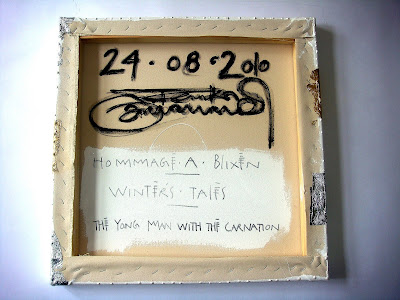 24·08·2010
HOMMMAGĒ·A·BLIXĒN
WINTĒRS·TALĒS
THĒ YONG MAN WITH THĒ CARNATION